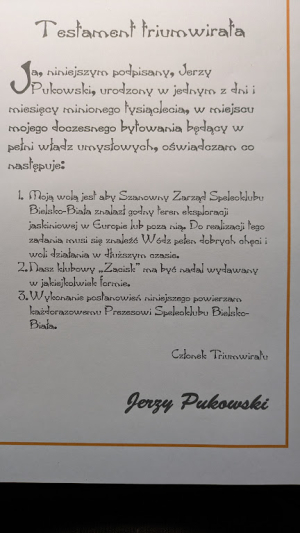 Testament triumwirata
Ja, niniejszym podpisany, Jerzy
Pukowski, urodzony w jednym z dni i
miesięcy minionego tysiąclecia, w miejscu
mojego doczesnego bytowania będący w
pełni władz umysłowych, oświadczam co
następuje:
1. Moją wolą jest aby Szanowny Zarząd Speleoklubu
Bielsko-Biała znalazł godny teren eksploracji
jaskiniowej w Europie lub poza nią. Do realizacji tego
zadania musi się znaleźć Wódz pełen dobrych chęci i
woli działania w dłuższym czasie.
2. Nasz klubowy „Zacisk” ma być nadal wydawany
w jakiejkolwiek formie.
3. Wykonanie postanowień niniejszego powierzam
każdorazowemu Prezesowi Speleoklubu Bielsko-
Biała.
Członek Triumwiratu
Jerzy Pukowski